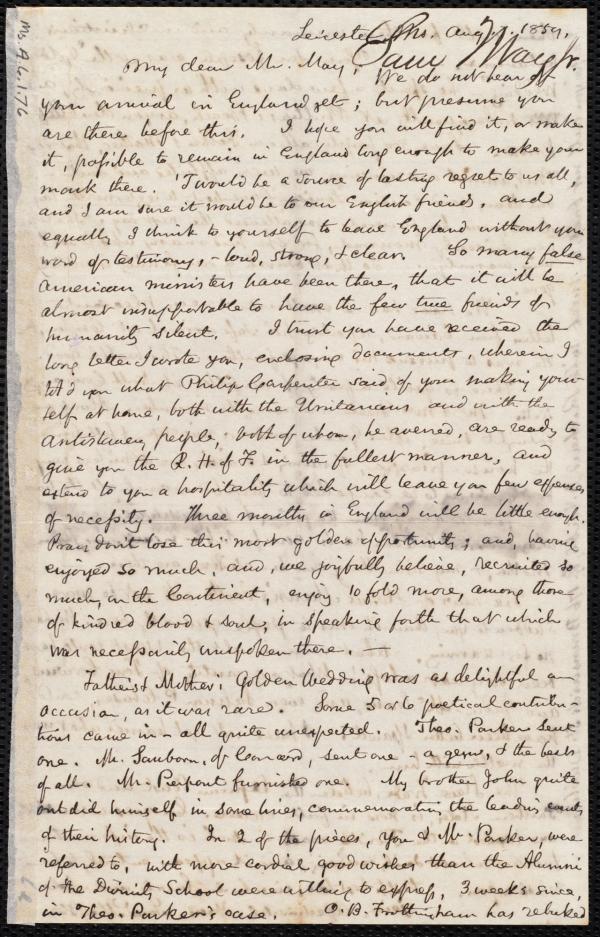 Leicester, Aug 1859.
Saml May Jr.
My dear Mr. May, We do not hear of
your arrival in England yet; but presume you
are there before this. I hope you will find it, or make
it, possible to remain in England long enough to make your
mark there. 'Twould be a source of lasting regret to us all,
and I am sure it would be to our English friends, and
equally I think to yourself to leave England without your
word of testimony, - loud, strong, & clear. So many false
American ministers have been there, that it will be
almost insupportable to have the few true friends of
humanity silent. I trust you have received the
long letter I wrote you, enclosing documents, wherein I
told you what Philip Carpenter said of your making your-
self at home, both with the Unitarians and with the
Antislavery people, both of whom, he averred, are ready to
give you the R. H. of F. in the fullest manner, and
extend to you a hospitality which will leave you few expenses
of necessity. Three months in England will be little enough.
Pray don't lose this most golden opportunity; and, having
enjoyed so much, and, we joyfully believe, recruited so
much, on the Continent, enjoy 10 fold more, among those
of kindred blood & soul, in speaking forth that which
was necessarily unspoken there. —
Father & Mother's Golden Wedding was as delightful an
occasion, as it was rare. Some 5 or 6 poetical contribu-
tions came in - all quite unexpected. Theo. Parker sent
one. Mr. Sanborn, of Concord, sent one - a gem, & the best
of all. Mr. Pierpont furnished one. My brother John quite
out did himself in some lines, commemorating the leading events
of their history. In 2 of the pieces, you & Mr. Parker, were
referred to, with more cordial good wishes than the Alumni
of the Divinity School were willing to express, 3 weeks since,
in Theo. Parker's case. O. B. Frothingham has rebuked
Ms. A. 6. 1. 76